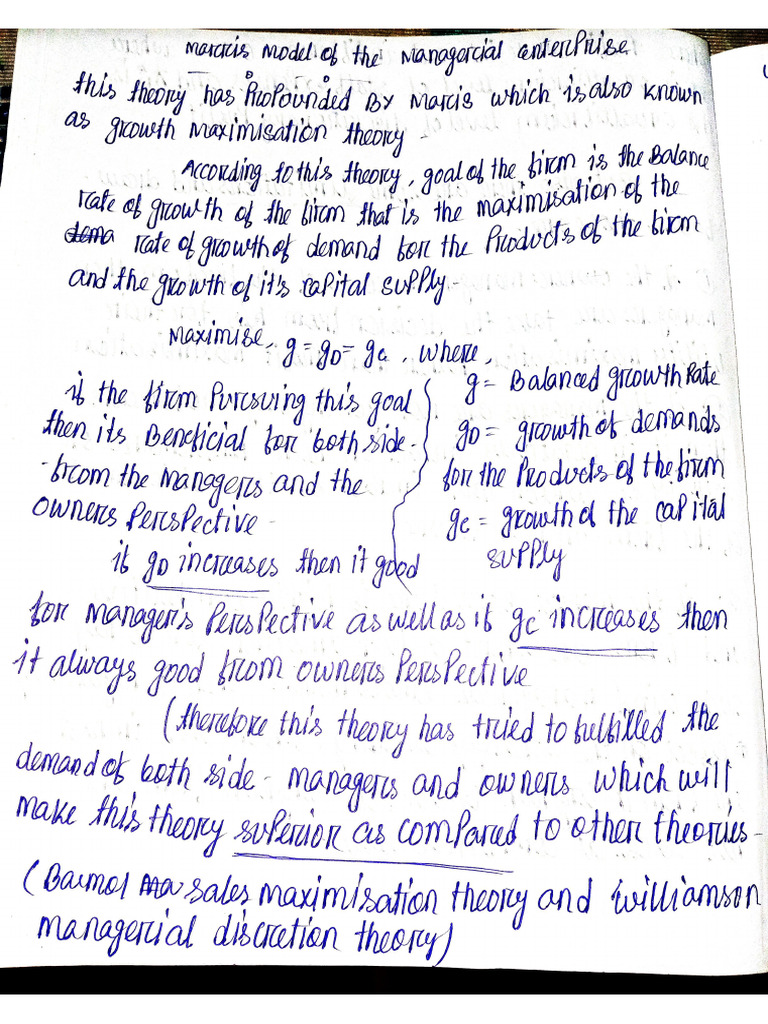 Marris Model of the Managerial enterprise
this theory has Profounded By Marris which is also known
as growth Maximisation theory -
According to this theory, goal of the firm is the Balance
rate of growth of the firm that is the maximisation of the
dema rate of growth of demand for the Products of the firm
and the growth of it's capital supply -
Maximise, g = gD = gc , where,
if the firm Pursuing this goal
then its Beneficial for both side -
- from the managers and the
owners Perspective -
g = Balanced growth Rate
gD = growth of demands
for the Products of the firm
gc = growth of the capital
supply
if gD increases then it good
for manager's Perspective as well as if gc increases then
it always good from owners Perspective
(therefore this theory has tried to fulfilled the
demand of both side - managers and owners which will
make this theory superior as compared to other theories -
(Baumol Ma sales maximisation theory and williamson
managerial discretion theory)